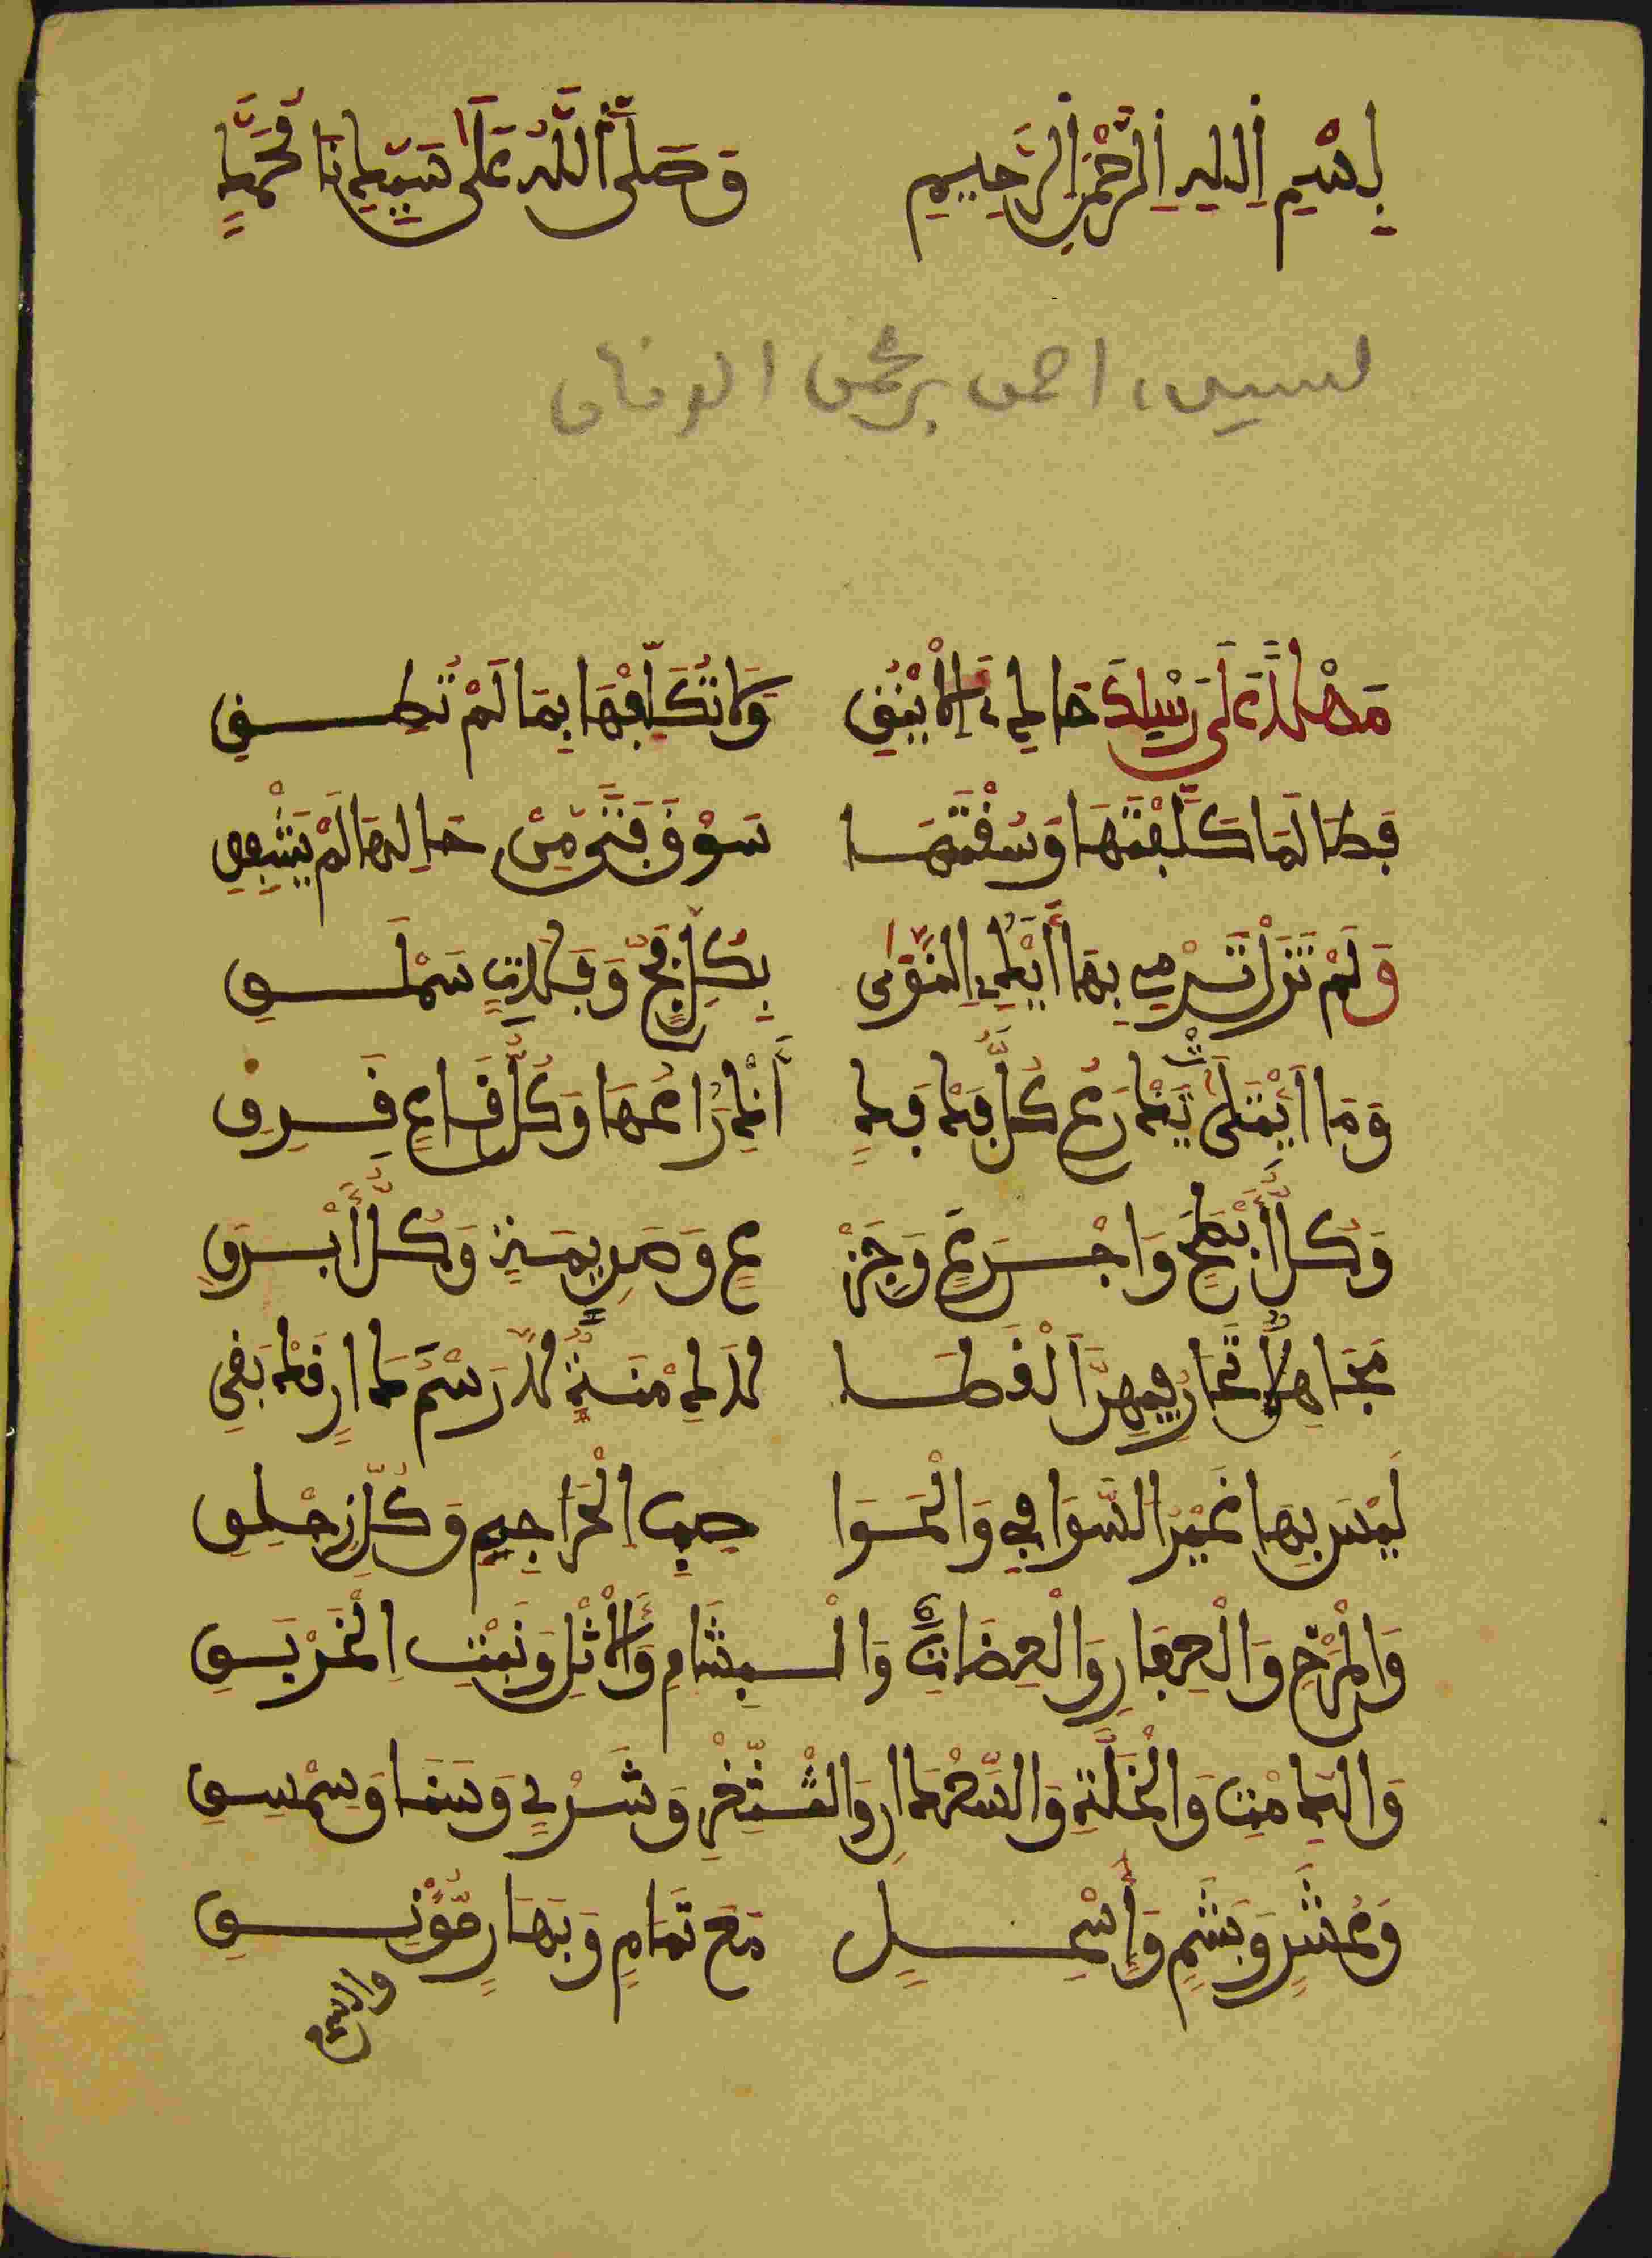 بِسْمِ اِللهِ اِلرَّحْمَنِ اِلرَّحِيمِ وَصَلَّى اَللَّهُ عَلَى سَيِّدِنَا مُحَمَّدٍ
لسيد، احمد بن محمد الونان
مَهْلًا عَلَى رِسْلِكَ حَادِيَ اَلْأَيْنُقِ وَلَا تُكَلِّفْهَا بِمَا لَمْ تُطِقِ
فَطَالَمَا كَلَّفْتَهَا وَسُقْتَهَا سَوْقَ فَتًى مِنْ حَالِهَا لَمْ يُشْفِقِ
وَلَمْ تَزَلْ تَرْمِي بِهَا أَيْدِي اِلنَّوَى بِكُلِّ فَجٍّ وَفَلَاةٍ سَمْلَقِ
وَمَا ائْتَلَتْ تَذْرَعُ كُلَّ فَدْفَدٍ أَذْرُعُهَا وَكُلَّ قَاعٍ قَرِقِ
وَكُلَّ أَبْطَحٍ وَأَجْرَعٍ وَجِزْ عٍ وَصَرِيمَةٍ وَكُلَّ أَبْرَقِ
مَجَاهِلٌ تَحَارُ فِيهِنَّ اَلْقَطَا لَا دِمْنَةٌ لَا رَسْمَ دَارٍ قَدْ بَقِي
لَيْسَ بِهَا غَيْرُ السَّوَافِي وَالْحَوَا صِبِ الْحَرَاجِيجِ وَكُلِّ زِحْلِقِ
وَالْمَرْخِ وَالْعَفَارِ وَالْعِضَاهِ وَالْبَشَامِ وَالْأَثْلِ وَنَبْتِ اِلْخَرْبَقِ
وَالرِّمْثِ وَالْخُلَّةِ وَالسَّعْدَانِ وَالثَّغْرِ وَشَرْيٍ وَسَنَا وَسِمْسِقِ
وَعُشَرٍ وَنَشَمٍ وَإِسْحِلٍ مَعَ ثُمَامٍ وَبَهَارٍ مُونِقِ